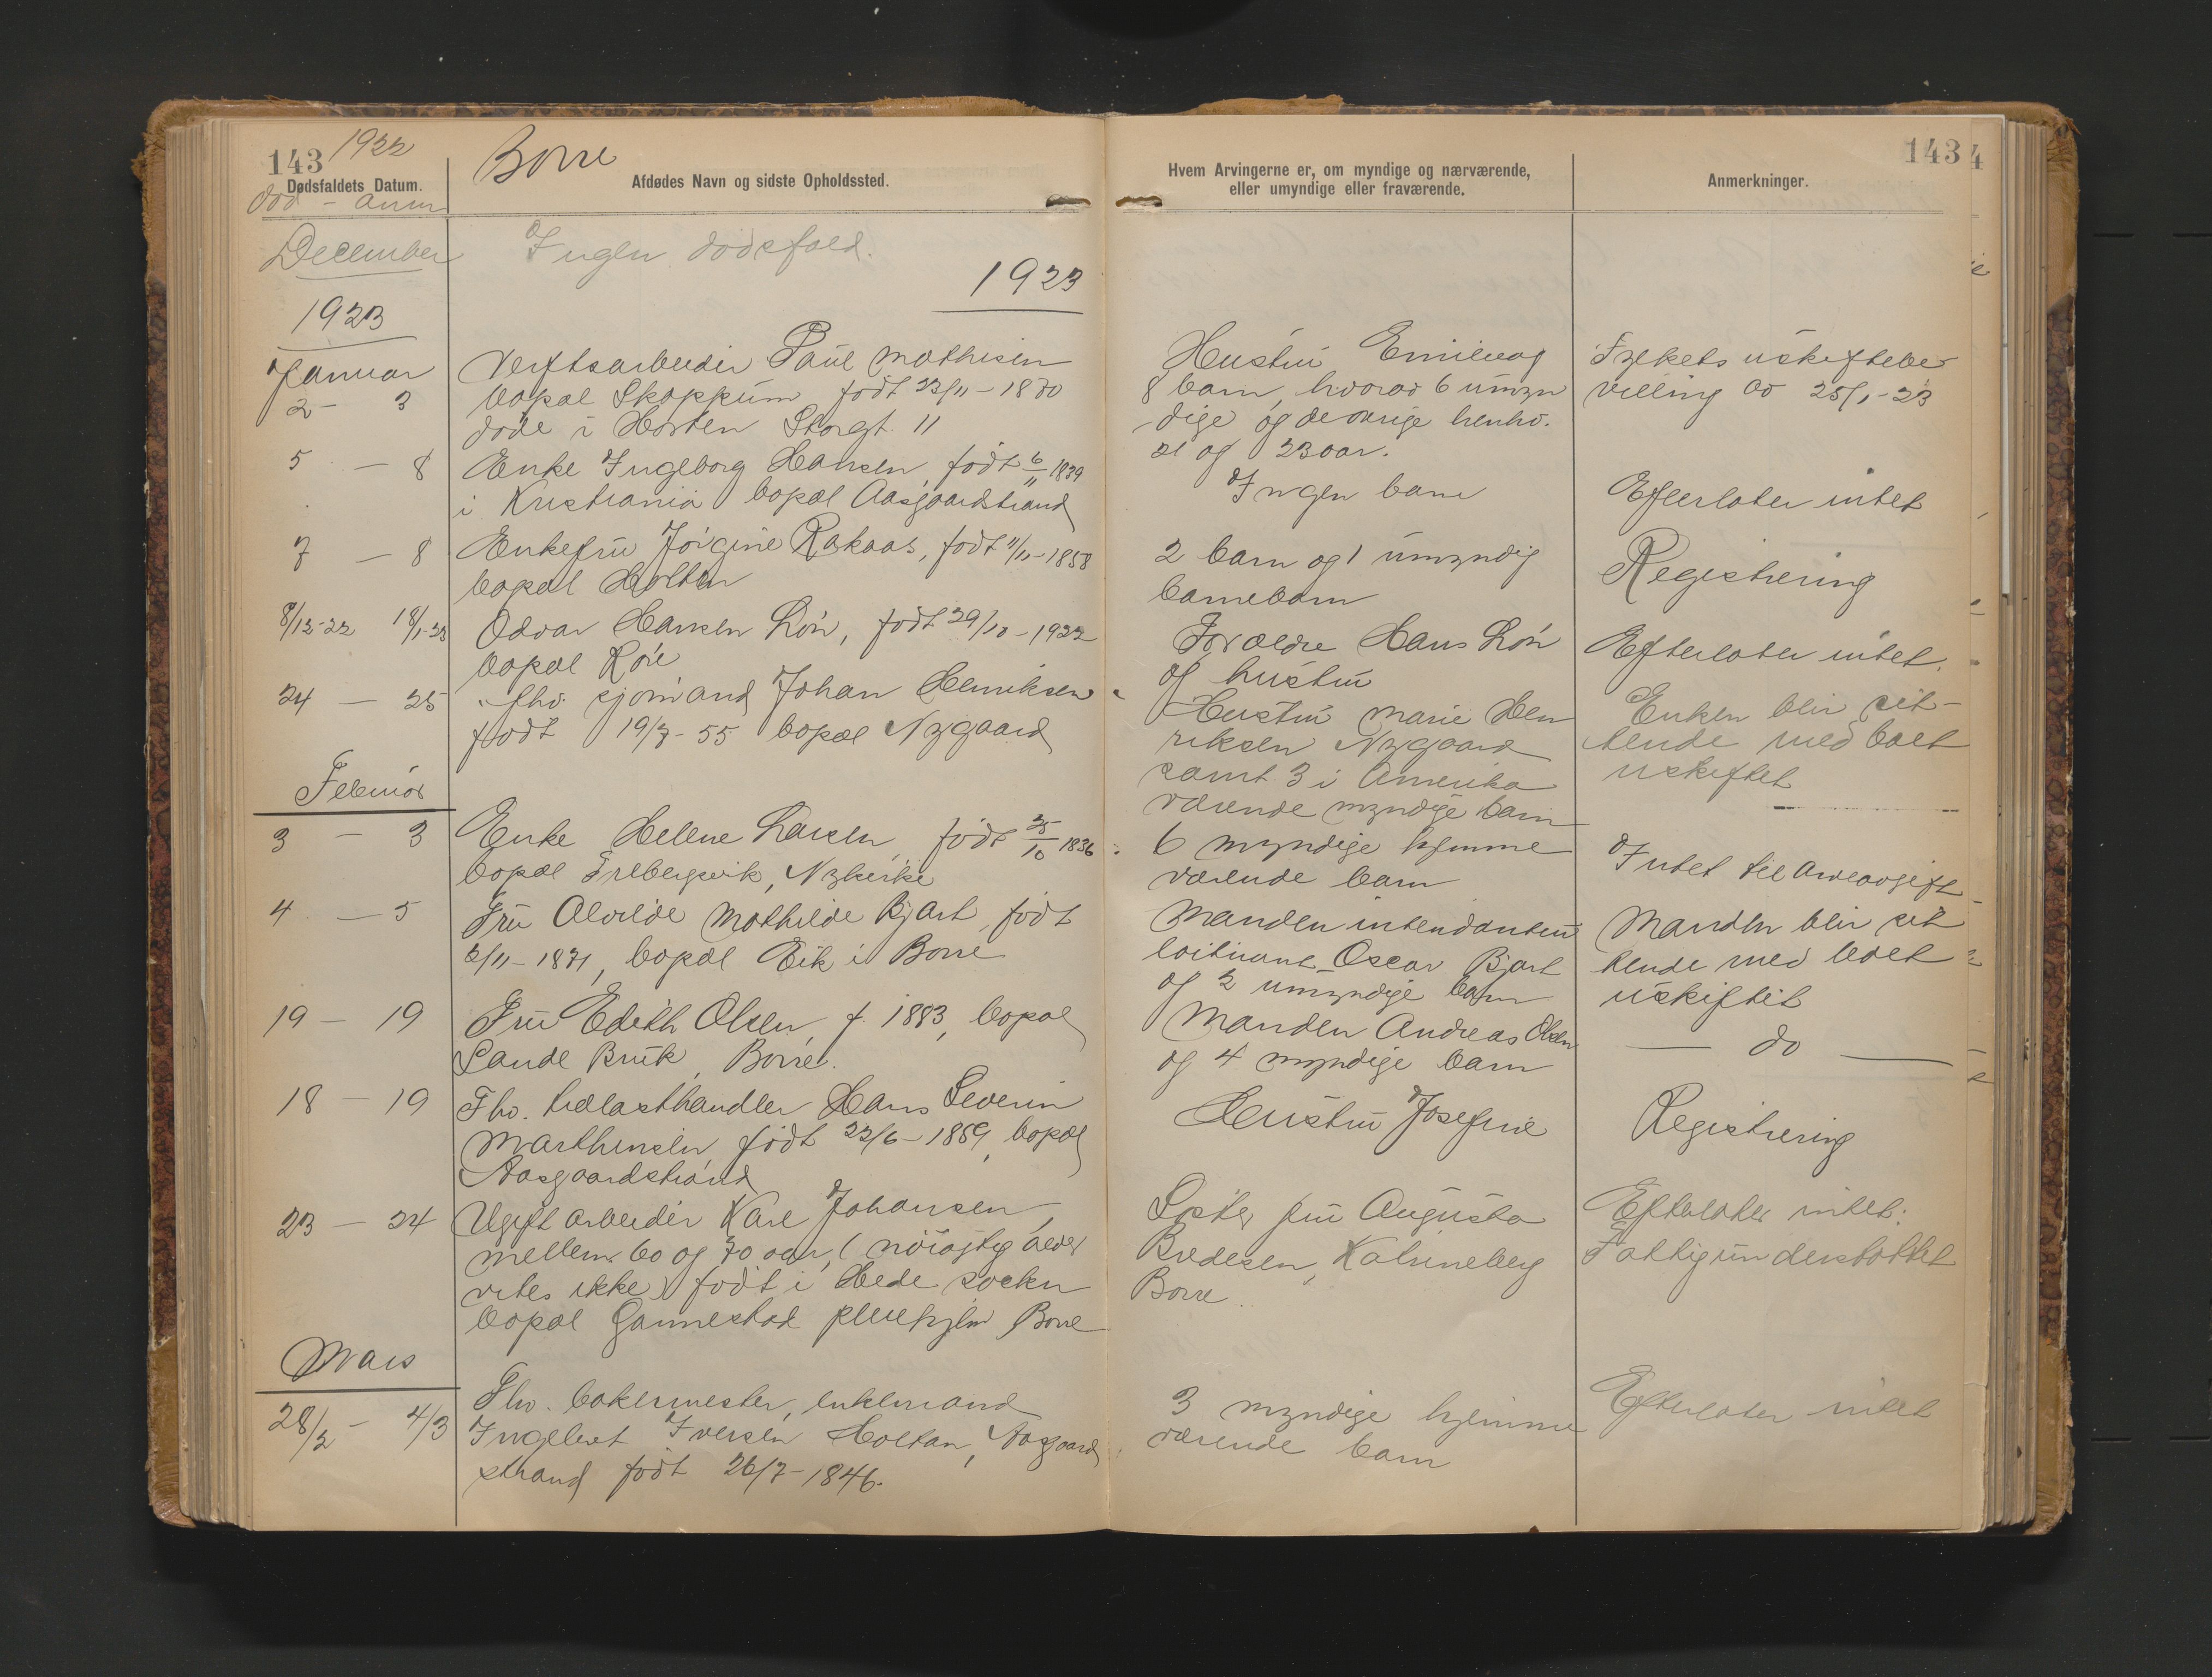 143 1922
Borre
Dødsfaldets Datum.
død - anm
Afdødes Navn og sidste Opholdssted.
December
Ingen dødsfald.
1923
1923
Januar
2 - 3
Verftsarbeider Paul Mathisen
bopæl Skoppum født 23/11-1870
døde i Horten Storgt. 11
5 - 8
Enke Ingeborg Hansen, født 6/11 1839
i Kristiania bopæl Aasgaardstrand
7 - 8
Enkefru Jørgine Rakaas, født 11/11-1858
bopæl Holten
8/12-22 18/1-23
Odvar Hansen Løn, født 29/10-1922
bopæl Røre
24 - 25
fhv. sjømand Johan Henriksen
født 19/7-55 bopæl Nygaard
Februar
3 - 3
Enke Helene Larsen, født 25/10 1836
bopæl Frebergsvik, Nykirke
4 - 5
Fru Alvilde Mathilde Bjart, født
2/11-1871, bopæl Eik i Borre
19 - 19
Fru Edith Olsen, f. 1883, bopæl
Sande Bruk, Borre.
18 - 19
Fhv. trælasthandler Hans Severin
Marthinsen, født 22/6-1859, bopæl
Aasgaardstrand
23 - 24
Ugift arbeider Karl Johansen,
mellem 60 og 70 aar, (nøiagtig alder
vites ikke) født i Hede socken
bopæl Gannestad pleiehjem Borre
Mars
28/2 - 4/3
Fhv. bakermester, enkemand
Ingebret Iversen Holtan, Aasgaard
strand født 26/7-1846.
143
4
Hvem Arvingerne er, om myndige og nærværende,
eller umyndige eller fraværende.
Anmerkninger.
Hustru Emilie og
8 barn, hvorav 6 umyn
-dige og de øvrige henhv.
21 og 23 aar.
Fylkets uskiftebe
villing av 25/1-23
Ingen barn
Efterlater intet
2 barn og 1 umyndig
barnebarn
Registrering
Forældre Hans Løn
og hustru
Efterlater intet.
Hustru Marie Hen
riksen Nygaard
samt 3 i Amerika
værende myndige barn
Enken blir sit-
tende med boet
uskiftet
6 myndige hjemme
værende barn
Intet til arveavgift
Manden intendantur
løitnant Oscar Bjart
og 2 umyndige barn
Manden blir sit
tende med boet
uskiftet
Manden Andreas Olsen
og 4 myndige barn
do
Hustru Josefine
Registrering
Søster fru Augusta
Bredesen, Katrineberg
Borre.
Efterlater intet.
Fattigunderstøttet
3 myndige hjemme
værende barn
Efterlater intet